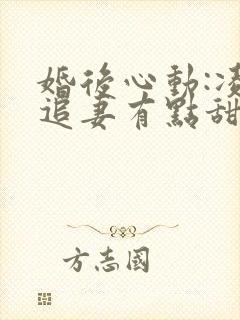 婚後心動:凌
追妻有點甜
方志國